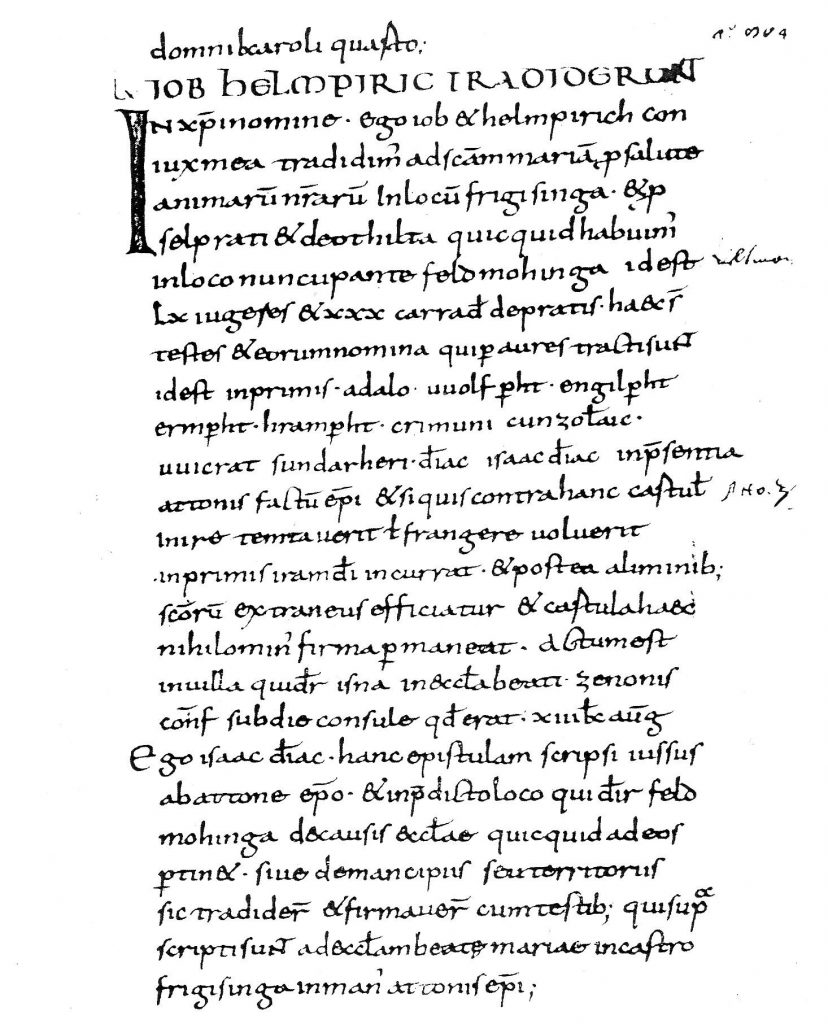 domni karoli quarto;
IOB HELMPIRIC TRADIDERUNT
IN xp̄i nomine · ego iob & helmpirich con
iux mea tradidim᾽ ad sc̄am mariā ꝑ salute
animarū nr̄arū In locū frigisinga · & ꝑ
selprati & deothilta quicquid habuim᾽
in loco nuncupante feldmohinga id est
Lx iugeres & xxx carrad̄ de pratis · haec s̄
testes & eorum nomina qui ꝑ aures tracti sunt
id est inprimis · adalo · uuolfꝑht · engilꝑht
ermꝑht · hramꝑht · crimuni cunzo ł aic ·
uuicrat sundarheri · diac̄ isaac diac̄ in p̄sentia
attonis factū ep̄i & si quis contra hanc cartul̄
inire temtauerit ł frangere uoluerit
inprimis iram dī incurrat · & postea a liminib;
sc̄orū extraneus efficiatur & cartula haec
nihilomin᾽ firma ꝑmaneat · Actum est
in uilla qui dr̄ isna in eccl̄a beati · zenonis
conf̄ sub die consule qd̄ erat · xiiii kł aūg
Ego isaac diac̄ · hanc epistulam scripsi iussus
ab attone ep̄o · & in p̄dicto loco qui dr̄ feld
mohinga de causis eccl̄ae quicquid ad eos
ꝑtin& · siue de mancipiis seu territoriis
sic trader̄ & firmauer̄ cum testib; qui sup̄
scripti sunt ad eccl̄am beate mariae in castro
frigisinga in man᾽ attonis ep̄i;